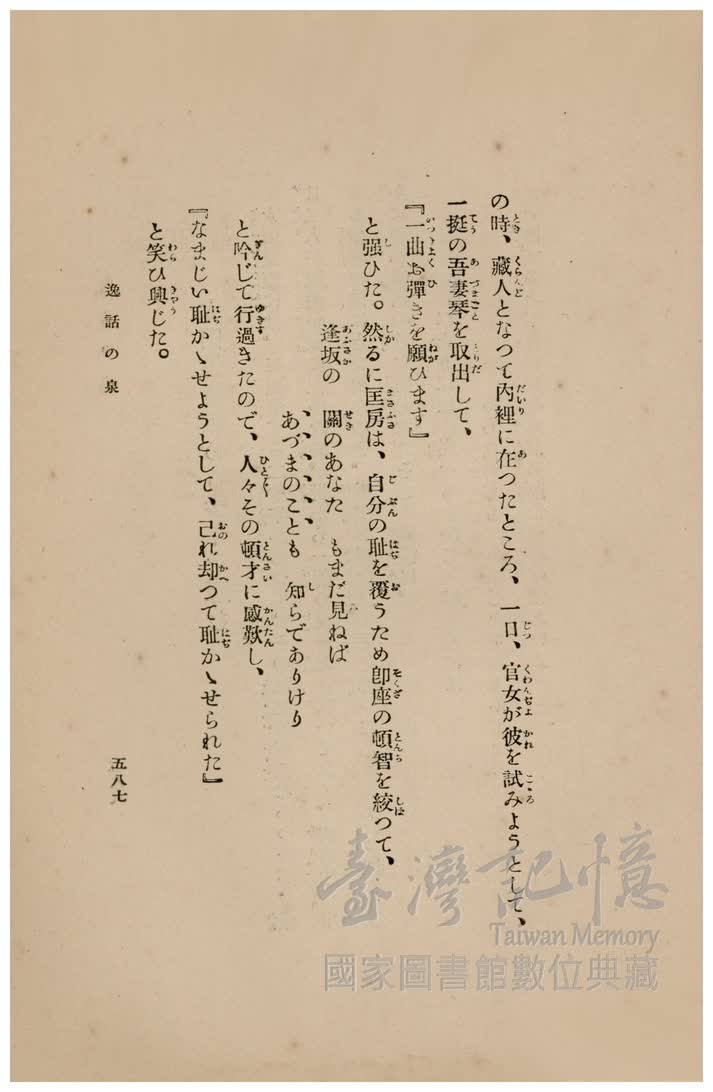 の時、藏人となつて內裡に在つたところ、一日、官女が彼を試みようとして、
一挺の吾妻琴を取出して、
『一曲お彈きを願ひます』
と强ひた。然るに匡房は、自分の耻を覆うため卽座の頓智を絞つて、
逢坂の　關のあなた　もまだ見ねば
あづまのことも　知らでありけり
と吟じて行過きたので、人々その頓才に感歎し、
『なまじい耻かゝせようとして、己れ却つて耻かゝせられた』
と笑ひ興じた。
逸話の泉
五八七
臺灣記憶
Taiwan Memory
國家圖書館數位典藏